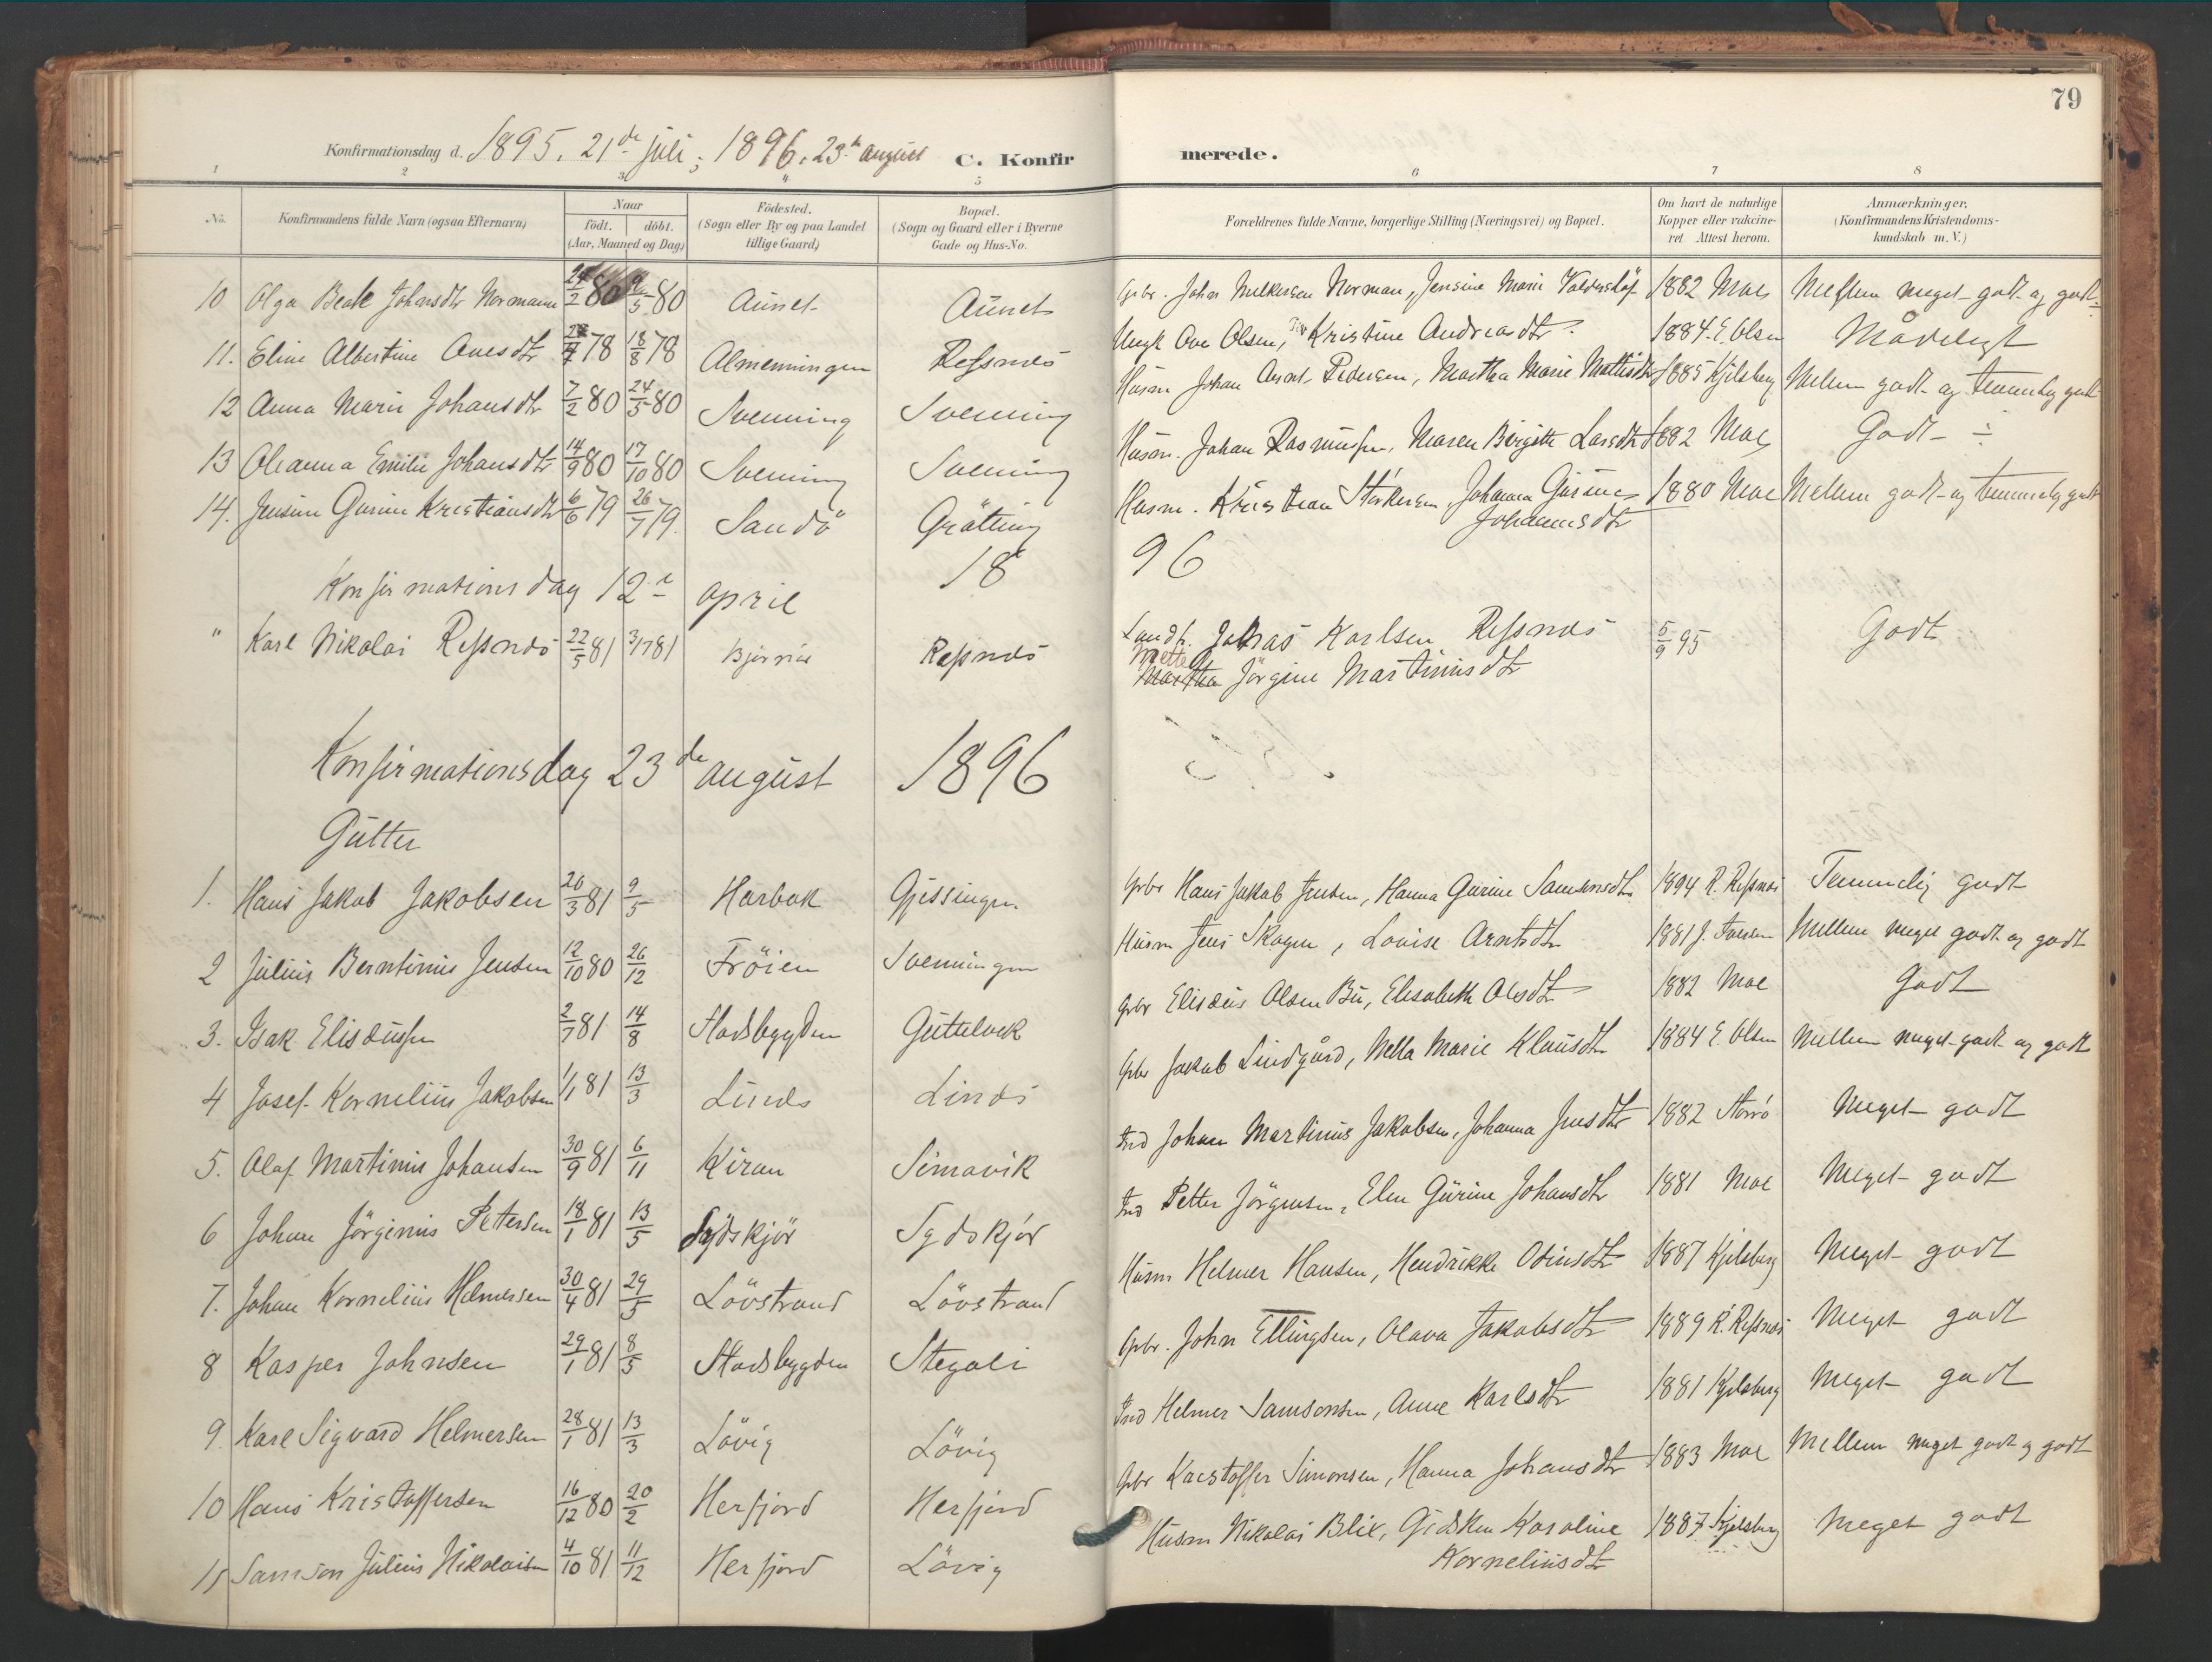 79
Konfirmationsdag d. 1895. 21de juli; 1896. 23de august C. Konfirmerede.
1 2 3 4 5 6 7 8
No. Konfirmandens fulde Navn (ogsaa Efternavn) Naar födt. döbt. (Aar, Maaned og Dag) Födested. (Sogn eller By og paa Landet tillige Gaard) Bopæl. (Sogn og Gaard eller i Byerne Gade og Hus-No. Forældrenes fulde Navne, borgerlige Stilling (Næringsvei) og Bopæl. Om havt de naturlige Kopper eller vakcineret Attest herom. Anmærkninger. (Konfirmandens Kristendomskundskab m. V.)
10 Olga Beate Johnsdtr Normann 80 80 Aunet Aunet Gbr. John Norman, Jensine Marie 1882 Moe Mellem meget godt og godt
11. Eline Albertine Ovesdtr 78 18/8 78 Almenningen Ressnes Ungk Ove Olsen, Kristine Andreasdtr. 1884. E Olsen Mådeligt
12 Anna Marie Johansdtr 7/2 80 24/5 80 Svenning Svenning Husm Johan Pedersen, Martha Marie 1885 Kjelsberg Mellem godt og temmelig godt
13 Oleanna Emilie Johansdtr 14/9 80 17/10 80 Svenning Svenning Husm. Johan Rasmussen, Maren Birgitte Larsdtr 1882 Moe Godt ÷
14. Jensine Gurine Kristiansdtr 6/6 79 26/7 79. Sandö Grötting Husm. Kristian Johanna Gurine Johannsdtr 1880 Moe Mellem godt og temmelig godt
Konfirmationsdag 12te april 1896
" Karl Nikolai Ressnes 22/5 81 3/7 81 Bjørnör Ressnes Landh. Karlsen Ressnes Mette Martha Jörgine Martinusdtr 5/9 95 Godt
Konfirmationsdag 23de august 1896
Gutter
1. Hans Jakob Jakobsen 26/3 81 9/5 Harbak Gjessingen Gbr Hans Jakob Jensen, Hanna Gurine Samsonsdtr 1894 R. Ressnes Temmelig godt
2 Julius Berntinus Jensen 12/10 80 26/12 Fröien Svenningen Husm Jens Skagen, Lovise Arntsdtr 1881 J. Iversen Mellem meget godt og godt
3. Isak Elisæussen 2/7 81 14/8 Stadsbygden Guttelvik Gbr Elisæus Olsen Bu, Elisabeth Olsdtr 1882 Moe Godt
4 Josef Kornelius Jakobsen 1/1 81 13/3 Linds Linds Gbr Jakob Lindgård, Nella Marie Klausdtr 1884 E Olsen Mellem meget godt og godt
5. Olaf Martinus Johansen 30/9 81 6/11 Kiran Simavik Ind Johan Martinus Jakobsen, Johanna Jensdtr 1882 Storrö Meget godt
6 Johan Jörginus Petersen 18/1 81 13/5 Sydskjör Sydskjör Ind Petter Jörgensen, Elen Gurine Johansdtr 1881 Moe Meget godt
7. Johan Kornelius Helmersen 30/4 81 29/5 Lövstrand Lövstrand Husm Helmer Hansen, Hendrikke Odinsdtr 1887 Kjelsberg Meget godt
8 Kasper Johnsen 29/1 81 8/5 Stadsbygden Stegali Gbr. John Ellingsen, Olava Jakobsdtr 1889 R. Ressnes Meget godt
9. Karl Sigvard Helmersen 28/1 81 13/3 Lövig Lövig Ind Helmer Samsonsen, Anne Karlsdtr 1881 Kjelsberg Meget godt
10 Hans Kristoffersen 16/12 80 20/2 Herfjord Herfjord Gbr Kristoffer Simonsen, Hanna Johansdtr 1883 Moe Mellem meget godt og godt
11 Samson Julius Nikolaisen 4/10 81 11/12 Herfjord Lövig Husm Nikolai Blix, Gidsken Karoline Korneliusdtr 1887 Kjelsberg Meget godt